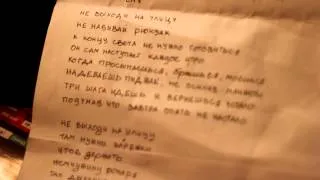 НЕ ВЫХОДИ НА УЛИЦУ
НЕ НАБИВАЙ РЮКЗАК
К КОНЦУ СВЕТА НЕ НУЖНО ГОТОВИТЬСЯ
ОН САМ НАСТУПАЕТ КАЖДОЕ УТРО
КОГДА ПРОСЫПАЕШЬСЯ, БРЕЕШЬСЯ, МОЕШЬСЯ
НАДЕВАЕШЬ ПИДЖАК, НЕ
ТРИ ШАГА ИДЕШЬ И ВЕРНЕШЬСЯ
ЧТО ЗАВТРА ОПЯТЬ НЕ НАСТАЛО
НЕ ВЫХОДИ НА УЛИЦУ
ТАМ НУЖНЫ ВАРЕЖКИ
ЧТОБ ДЕРЖАТЬ